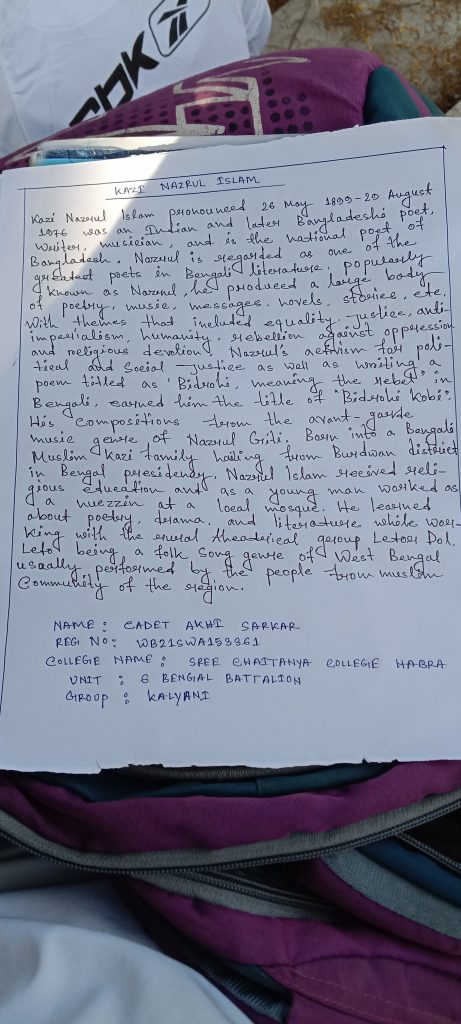 KAZI NAZRUL ISLAM
Kazi Nazrul Islam pronounced 26 May 1899-29 August
1976 was an Indian and later Bangladeshi poet,
Writer, musician, and is the national poet of
Bangladesh. Nazrul is regarded as one of the
greatest poets in Bengali literature. popularly
known as Nazrul, he produced a large body
of poetry, music, messages, novels, stories, etc.
with themes that included equality, justice, anti-
imperialism, humanity, rebellion against oppression
and religious devotion. Nazrul's activism for poli-
tical and Social justice as well as writing a
poem titled as 'Bidrohi, meaning the rebel" in
Bengali, earned him the title of "Bidrohi Kobi".
His compositions from the avant-garde
music genre of Nazrul Giti. Born into a Bengali
Muslim Kazi family hailing from Burdwan district
in Bengal presidency, Nazrul Islam received reli-
gious education and as a young man worked as
a muezzin at a local mosque. He learned
about poetry, drama, and literature while wor-
king with the rural theaterical group Letor Dol,
Leto being a folk song genre of West Bengal
usually performed by the people from muslim
Community of the region.
NAME : CADET AKHI SARKAR
REGI NO : WB21SWA153361
COLLEGE NAME : SREE CHAITANYA COLLEGE HABRA
UNIT : 6 BENGAL BATTALION
GROUP : KALYANI